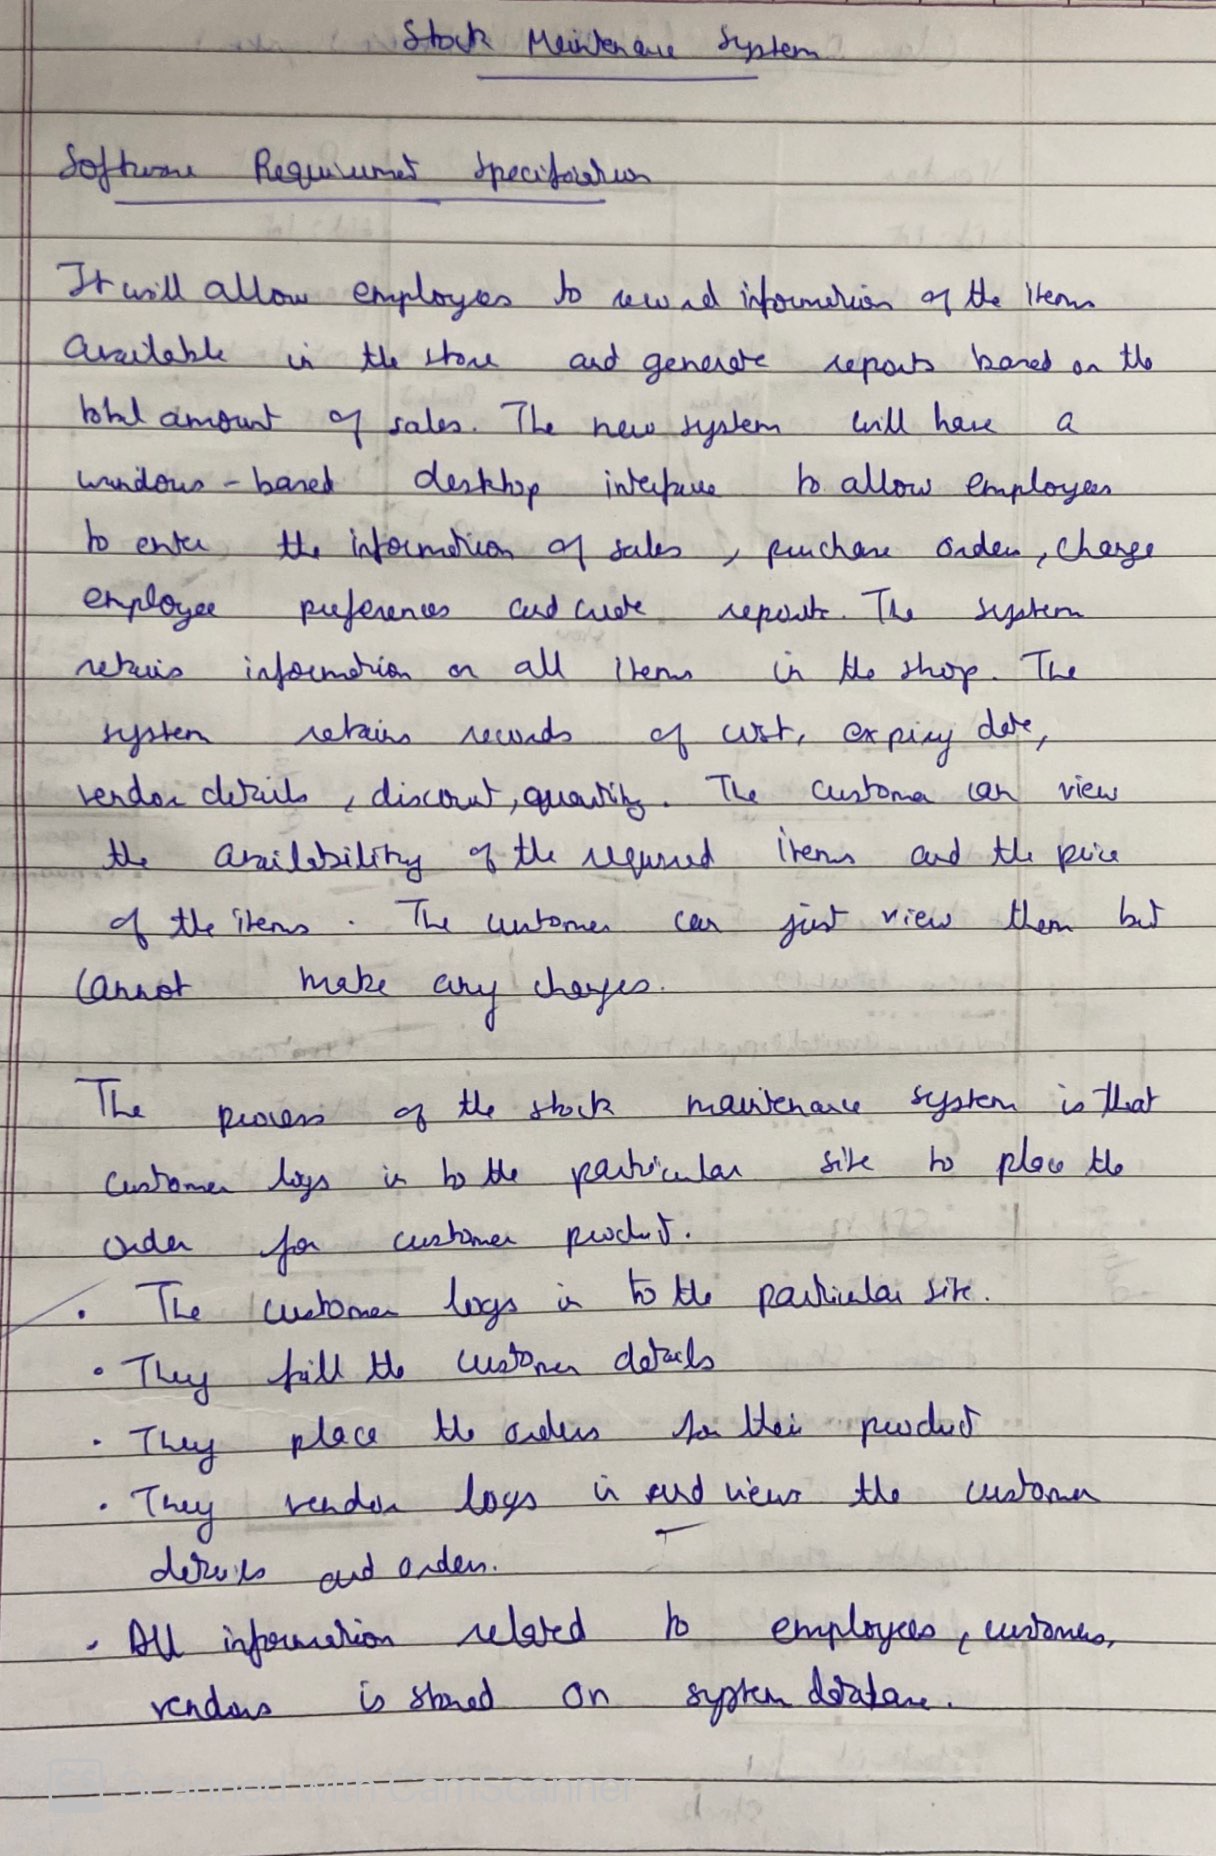 Stock Maintenance System
Software Requirement Specification
It will allow employees to record information of the items
available in the store and generate reports based on the
total amount of sales. The new system will have a
windows-based desktop interface to allow employees
to enter the information of sales, purchase orders, change
employee preferences and create reports. The system
retains information on all items in the shop. The
system retains records of cost, expiry date,
vendor details, discount, quantity. The customer can view
the availability of the required items and the price
of the items. The customer can just view them but
cannot make any changes.
The process of the stock maintenance system is that
customer logs in to the particular site to place the
order for customer product.
• The customer logs in to the particular site.
• They fill the customer details
• They place the orders for their product
• They vendor logs in and views the customer
details and orders.
• All information related to employees, customers,
vendors is stored on system database.